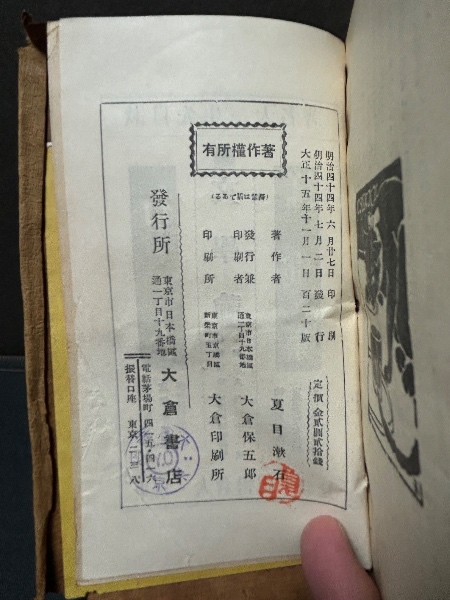 明治四十四年六月廿七日印刷
明治四十四年七月二日發行
大正十五年十一月一日百二十版
定價金貳圓貳拾錢
著作權所有
著作者
夏目漱石
發行兼印刷者
東京市日本橋區通一丁目十九番地
大倉保五郎
印刷所
大倉印刷所
發行所
東京市日本橋區通一丁目十九番地
大倉書店
電話茅場町
振替口座
東京